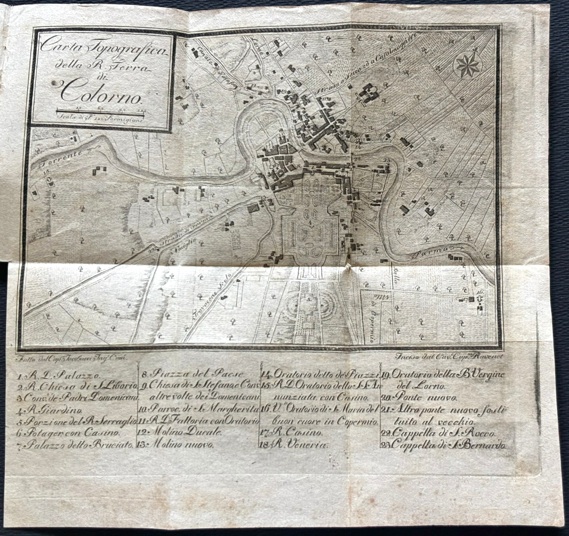 Carta Topografica
della R. Terra
di
Colorno.
Parma
1. R. D. Palazzo.
2. R. Chiesa di S. Liborio.
3. Conv. de Padri Domenicani
4. R. Giardino
5. Porzione del R. Serraglio
6. Potager con Casino.
7. Palazzo detto Bruciato.
8. Piazza del Paese
9. Chiesa di S. Stefano e Conv.
altre volte dei Domenicani
10. Parroc. di S. Margherita
11. R. D. Fattoria con Oratorio
12. Molino Ducale.
13. Molino nuovo.
14. Oratorio detto dei Pinazzi
15. R. D. Oratorio della SS. An
nunziata con Casino.
16. Oratorio di S. Maria del
buon cuore in Copermio.
17. R. Casino.
18. R. Veneria.
19. Oratorio della B. Vergine
del Lorno.
20. Ponte nuovo.
21. Altro ponte nuovo, sosti
tuito al vecchio.
22. Cappella di S. Rocco.
23. Cappella di S. Bernardo.